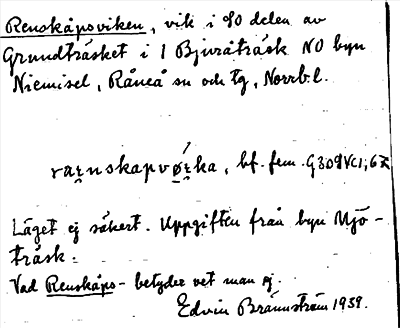 Renskåpsviken, vik i SO delen av
Grundträsket i l Bjuråträsk NO byn
Niemisel, Råneå sn och tg, Norrb.l.
ra̱nskapvø̱ka, bf. fem.
Läget ej säkert. Uppgiften från byn Mjö-
träsk.
Vad Renskåps- betyder vet man ej.
Edvin Brännström 1939.